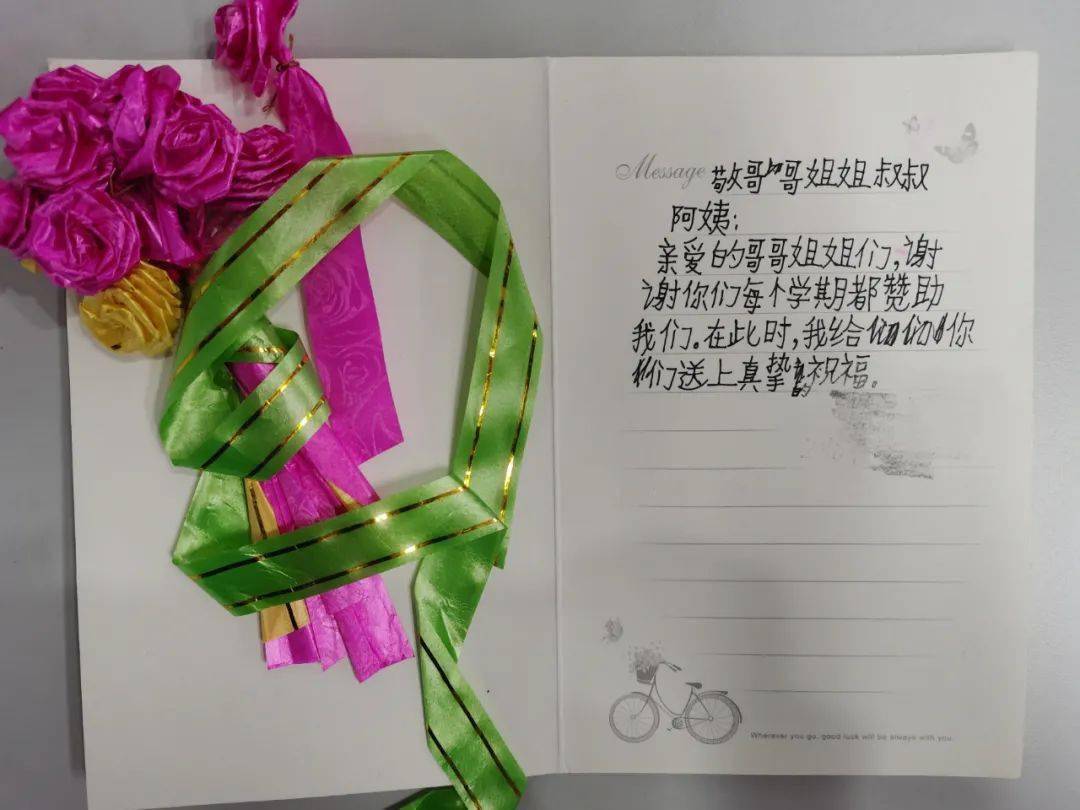 Message 敬哥哥姐姐叔叔
阿姨：
亲爱的哥哥姐姐们，谢
谢你们每个学期都赞助
我们。在此时，我给你
们送上真挚的祝福。
Wherever you go, good luck will be always with you.